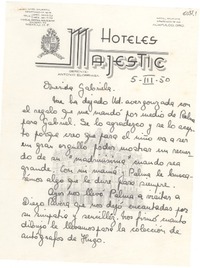 HOTELES
MAJESTIC
5-III-50
Querida Gabriela:
Me ha dejado Ud. avergonzada por
el regalo que me mandó por medio de Palma
para Gabriel. Se lo agradezco y se lo acep-
to porque creo que para el niño va a ser
un gran orgullo poder mostrar un recuer-
do de su madrinísima cuando sea
grande. Con mi mamá y Palma le busca-
remos algo que le dure para siempre.
Ayer nos llevó Palma a visitar a
Diego Rivera que nos dejó encantados por
su simpatía y sencillez. Nos firmó cuanto
dibujo le llevamos para la colección de
autógrafos de Hugo.